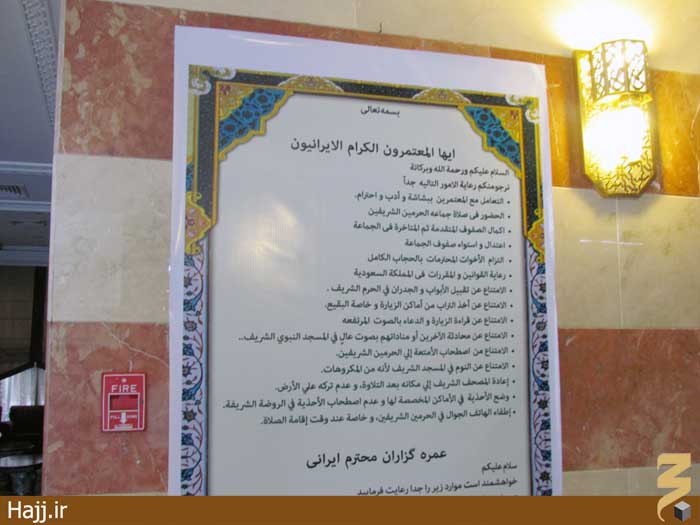 بسمه تعالی
ایها المعتمرون الکرام الایرانیون
السلام علیکم ورحمة الله وبرکاتة
نرجومنکم رعایة الامور التالیه جداً
• التعامل مع المعتمرین ببشاشة و أدب و احترام.
• الحضور فی صلاة جماعه الحرمین الشریفین
• اکمال الصفوف المتقدمة ثم المتاخرة فی الجماعة
• اعتدال و استواء صفوف الجماعة
• التزام الأخوات المحترمات بالحجاب الکامل
• رعایة القوانین و المقررات فی المملکة السعودیة
• الامتناع عن تقبیل الأبواب و الجدران في الحرم الشریف .
• الامتناع عن أخذ التراب من أماکن الزیارة و خاصة البقیع.
• الامتناع عن قراءة الزیارة و الدعاء بالصوت المرتفعه
• الامتناع عن محادثة الآخرین أو مناداتهم بصوت عالٍ في المسجد النبوي الشریف..
• الامتناع من اصطحاب الأمتعة إلي الحرمین الشریفین.
• الامتناع عن النوم في المسجد الشریف لأنه من المکروهات.
• إعادة المصحف الشریف إلي مکانه بعد التلاوة، و عدم ترکه علي الأرض.
• وضع الأحذیة في الأماکن المخصصة لها و عدم اصطحاب الأحذیة في الروضة الشریفة.
• إطفاء الهاتف الجوال في الحرمین الشریفین، و خاصة عند وقت إقامة الصلاة.
عمره گزاران محترم ایرانی
سلام علیکم
خواهشمند است موارد زیر را جدا رعایت فرمایید
FIRE
PULL DOWN
Hajj.ir